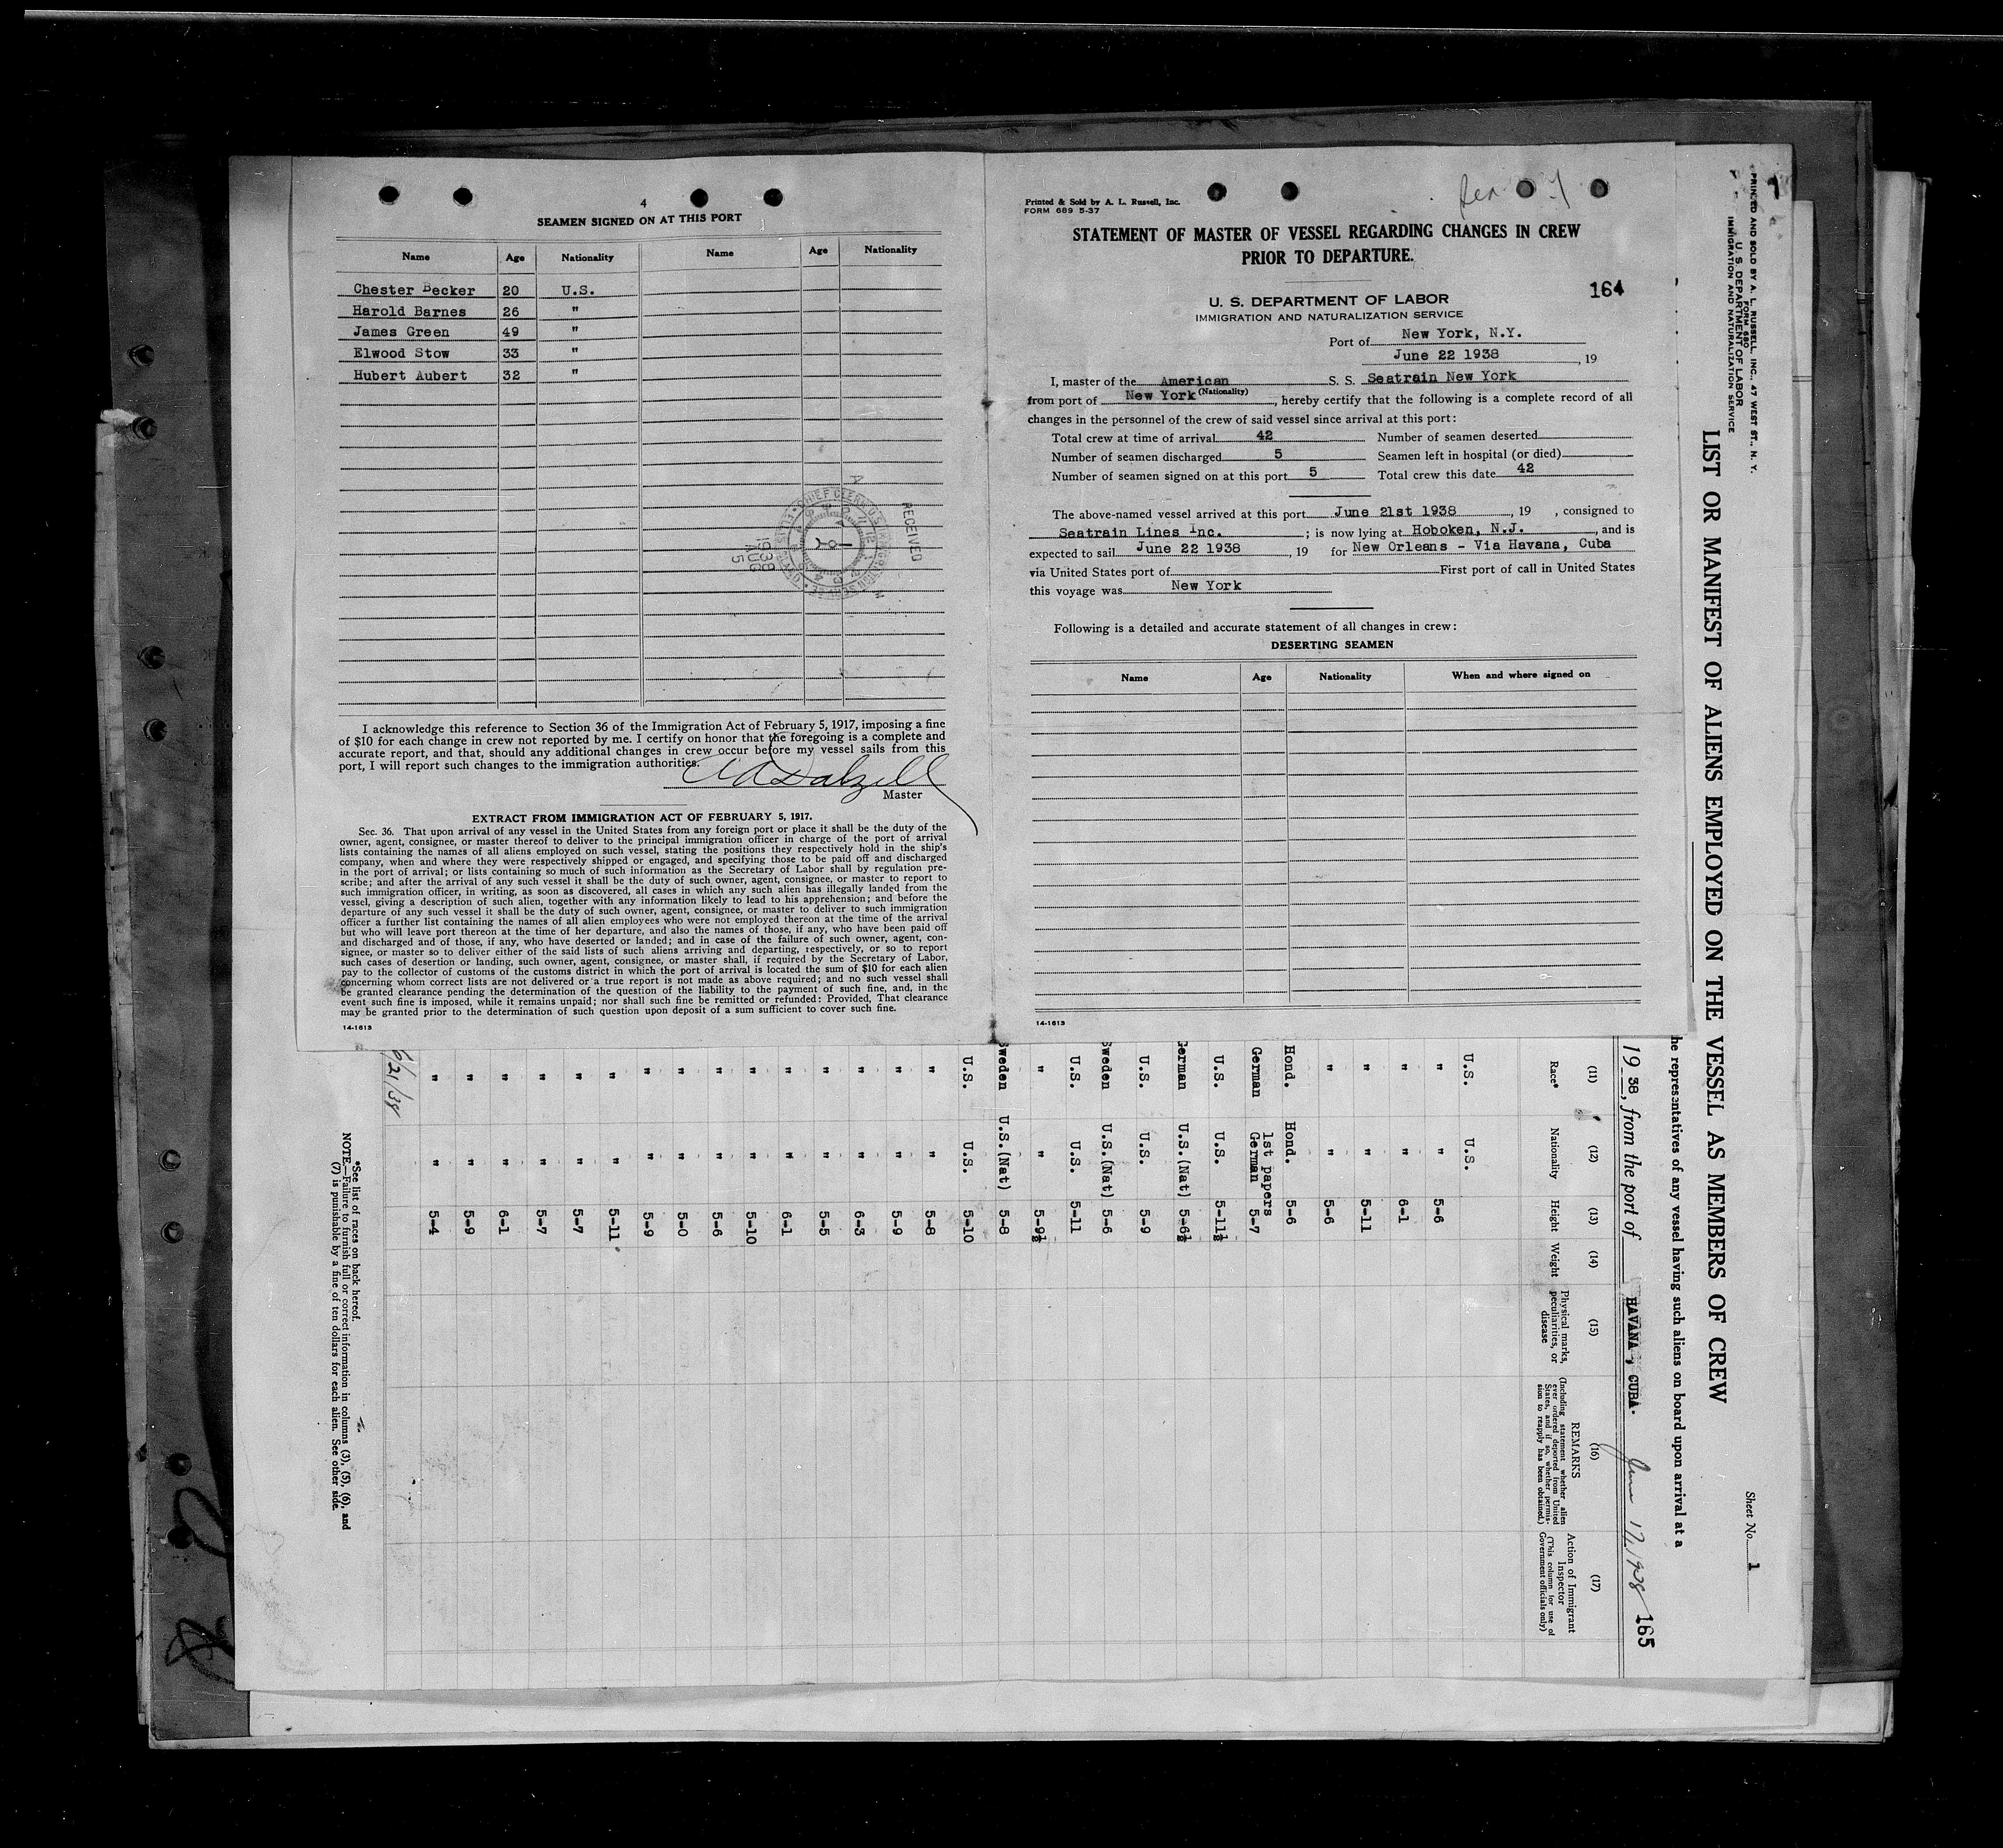 4
SEAMEN SIGNED ON AT THIS PORT
Name Age Nationality Name Age Nationality
Chester Becker 20 U.S.
Harold Barnes 26 "
James Green 49 "
Elwood Stow 33 "
Hubert Aubert 32 "
RECEIVED
1938 AUG 5
I acknowledge this reference to Section 36 of the Immigration Act of February 5, 1917, imposing a fine
of $10 for each change in crew not reported by me. I certify on honor that the foregoing is a complete and
accurate report, and that, should any additional changes in crew occur before my vessel sails from this
port, I will report such changes to the immigration authorities.
Master
EXTRACT FROM IMMIGRATION ACT OF FEBRUARY 5, 1917.
Sec. 36. That upon arrival of any vessel in the United States from any foreign port or place it shall be the duty of the
owner, agent, consignee, or master thereof to deliver to the principal immigration officer in charge of the port of arrival
lists containing the names of all aliens employed on such vessel, stating the positions they respectively hold in the ship's
company, when and where they were respectively shipped or engaged, and specifying those to be paid off and discharged
in the port of arrival; or lists containing so much of such information as the Secretary of Labor shall by regulation pre-
scribe; and after the arrival of any such vessel it shall be the duty of such owner, agent, consignee, or master to report to
such immigration officer, in writing, as soon as discovered, all cases in which any such alien has illegally landed from the
vessel, giving a description of such alien, together with any information likely to lead to his apprehension; and before the
departure of any such vessel it shall be the duty of such owner, agent, consignee, or master to deliver to such immigration
officer a further list containing the names of all alien employees who were not employed thereon at the time of the arrival
but who will leave port thereon at the time of her departure, and also the names of those, if any, who have been paid off
and discharged and of those, if any, who have deserted or landed; and in case of the failure of such owner, agent, con-
signee, or master so to deliver either of the said lists of such aliens arriving and departing, respectively, or so to report
such cases of desertion or landing, such owner, agent, consignee, or master shall, if required by the Secretary of Labor,
pay to the collector of customs of the customs district in which the port of arrival is located the sum of $10 for each alien
concerning whom correct lists are not delivered or a true report is not made as above required; and no such vessel shall
be granted clearance pending the determination of the question of the liability to the payment of such fine, and, in the
event such fine is imposed, while it remains unpaid; nor shall such fine be remitted or refunded: Provided, That clearance
may be granted prior to the determination of such question upon deposit of a sum sufficient to cover such fine.
14-1613
Printed & Sold by A. L. Russell, Inc.
FORM 689 5-37
STATEMENT OF MASTER OF VESSEL REGARDING CHANGES IN CREW
PRIOR TO DEPARTURE.
164
U. S. DEPARTMENT OF LABOR
IMMIGRATION AND NATURALIZATION SERVICE
Port of New York, N.Y.
June 22 1938, 19
I, master of the American S. S. Seatrain New York
(Nationality)
from port of New York, hereby certify that the following is a complete record of all
changes in the personnel of the crew of said vessel since arrival at this port:
Total crew at time of arrival 42 Number of seamen deserted
Number of seamen discharged 5 Seamen left in hospital (or died)
Number of seamen signed on at this port 5 Total crew this date 42
The above-named vessel arrived at this port June 21st 1938, 19 , consigned to
Seatrain Lines Inc. ; is now lying at Hoboken, N.J. , and is
expected to sail June 22 1938, 19 for New Orleans - Via Havana, Cuba
via United States port of First port of call in United States
this voyage was New York
Following is a detailed and accurate statement of all changes in crew:
DESERTING SEAMEN
Name Age Nationality When and where signed on
14-1613
PRINTED AND SOLD BY A. L. RUSSELL, INC., 47 WEST ST., N. Y.
FORM 680
U. S. DEPARTMENT OF LABOR
IMMIGRATION AND NATURALIZATION SERVICE
1
Sheet No. 1
LIST OR MANIFEST OF ALIENS EMPLOYED ON THE VESSEL AS MEMBERS OF CREW
he representatives of any vessel having such aliens on board upon arrival at a
1938, from the port of HAVANA, CUBA. June 17, 1938
165
(11) (12) (13) (14) (15) (16) (17)
Race* Nationality Height Weight Physical marks, peculiarities, or disease REMARKS (Including statement whether alien ever ordered deported from United States, and if so, whether permission to reapply has been obtained.) Action of Immigrant Inspector (This column for use of Government officials only)
U.S. U.S.
" " 5-6
" " 6-1
" " 5-11
" " 5-6
Hond. Hond. 5-6
German 1st papers German 5-7
U.S. U.S. 5-11½
German U.S.(Nat) 5-6½
U.S. U.S. 5-9
Sweden U.S.(Nat) 5-6
U.S. U.S. 5-11
" " 5-9½
Sweden U.S.(Nat) 5-8
U.S. U.S. 5-10
" " 5-8
" " 5-9
" " 6-3
" " 5-5
" " 6-1
" " 5-10
" " 5-6
" " 5-0
" " 5-9
" " 5-11
" " 5-7
" " 5-7
" " 6-1
" " 5-9
" " 5-4
6/21/38
*See list of races on back hereof.
NOTE.—Failure to furnish full or correct information in columns (3), (5), (6), and
(7) is punishable by a fine of ten dollars for each alien. See other side.